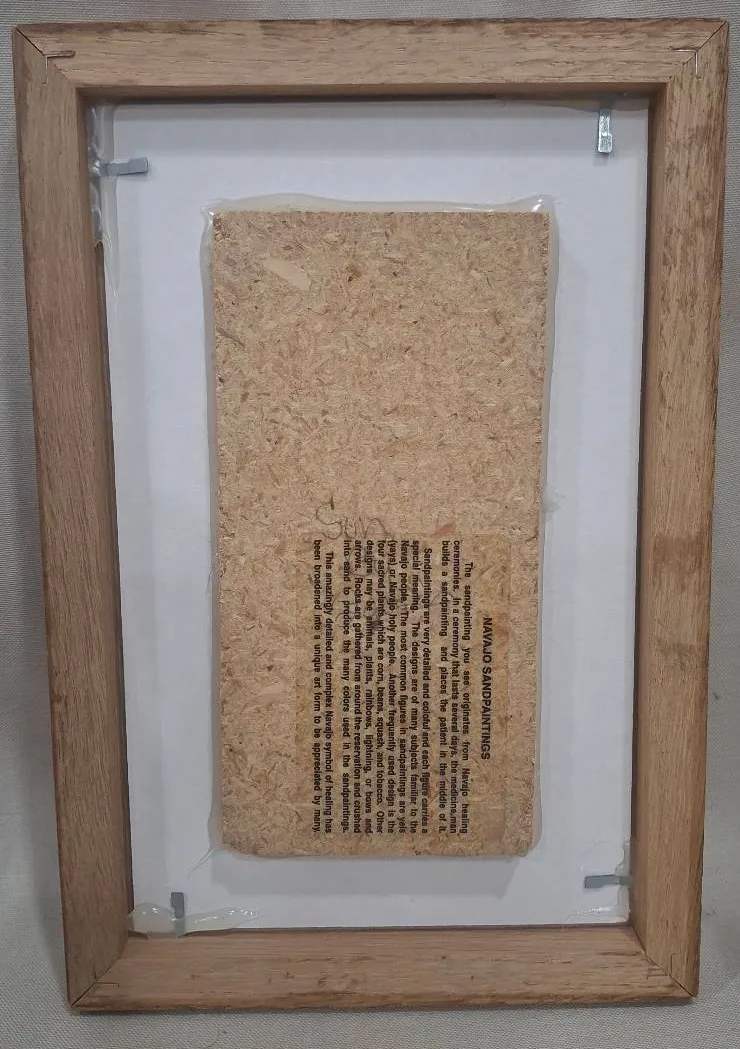 NAVAJO SANDPAINTINGS
The sandpainting you see originates from Navajo healing
ceremonies. In a ceremony that lasts several days, the medicine man
builds a sandpainting and places the patient in the middle of it.
Sandpaintings are very detailed and coloful and each figure carries a
special meaning. The designs are of many subjects familiar to the
Navajo people. The most common figures in sandpaintings are yeis
(yays) or Navajo holy people. Another frequently used design is the
four sacred plants which are corn, beans, squash, and tobacco. Other
designs may be animals, plants, rainbows, lightning, or bows and
arrows. Rocks are gathered from around the reservation and crushed
into sand to produce the many colors used in the sandpaintings.
This amazingly detailed and complex Navajo symbol of healing has
been broadened into a unique art form to be appreciated by many.